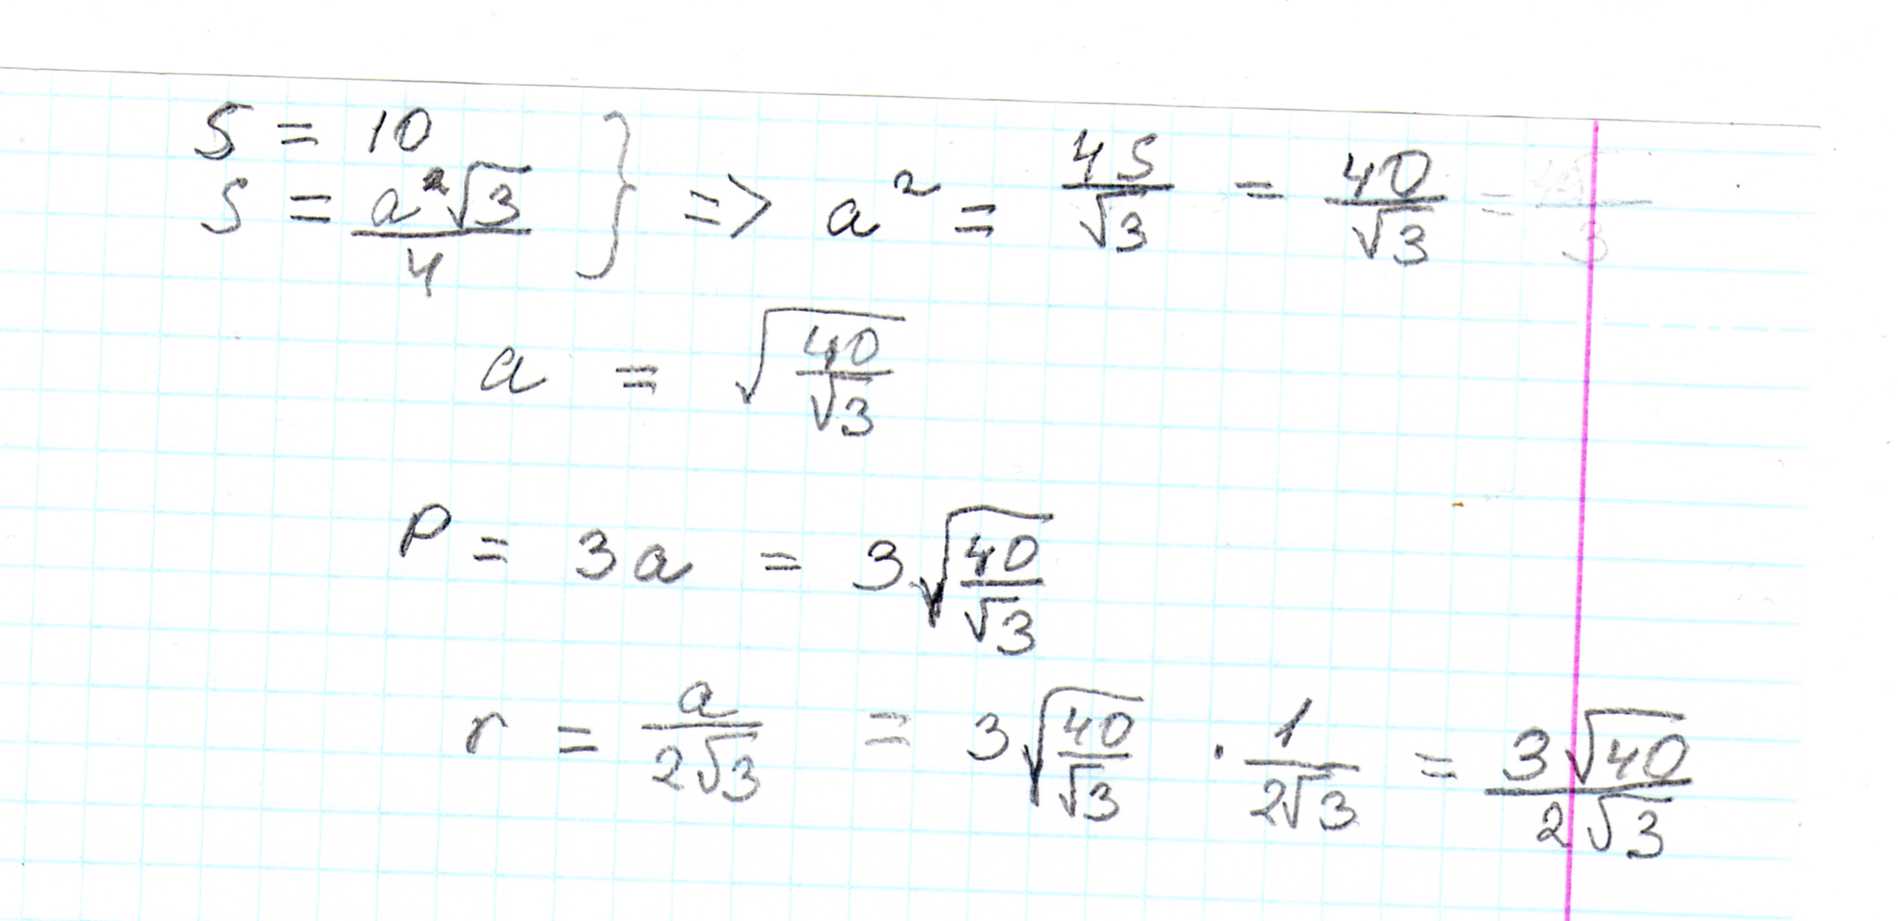 S = 10
S = a²√3/4 } => a² = 4S/√3 = 40/√3 =
a = √(40/√3)
P = 3a = 3√(40/√3)
r = a/2√3 = 3√(40/√3) · 1/2√3 = 3√40/2√3